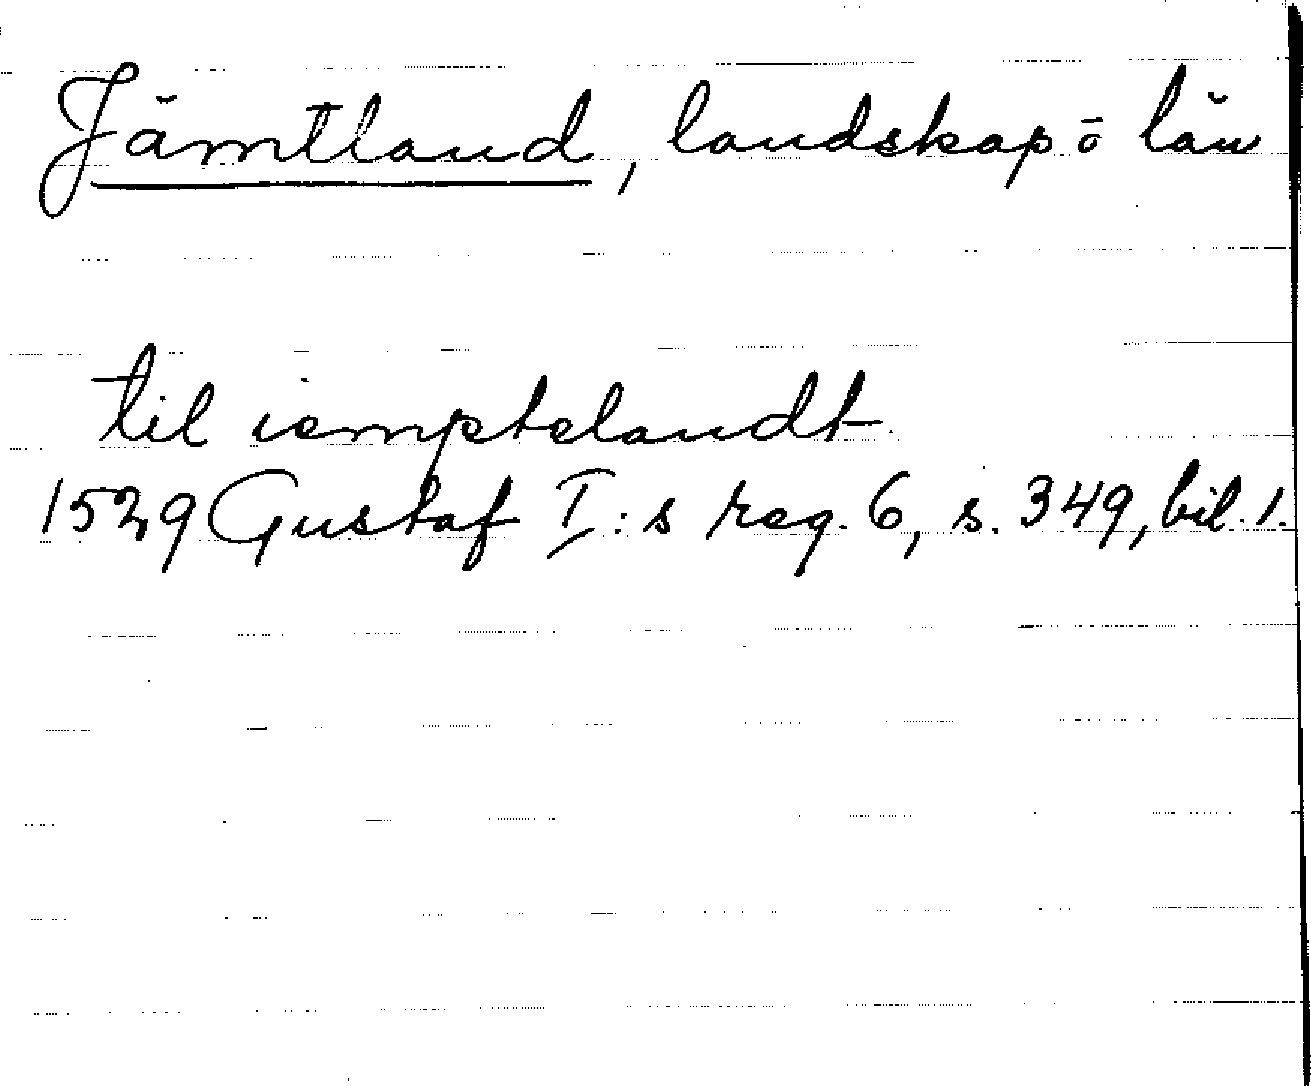 Jämtland, landskap ō län
til iemptelandt
1529 Gustaf I:s reg. 6, s. 349, bil. 1.